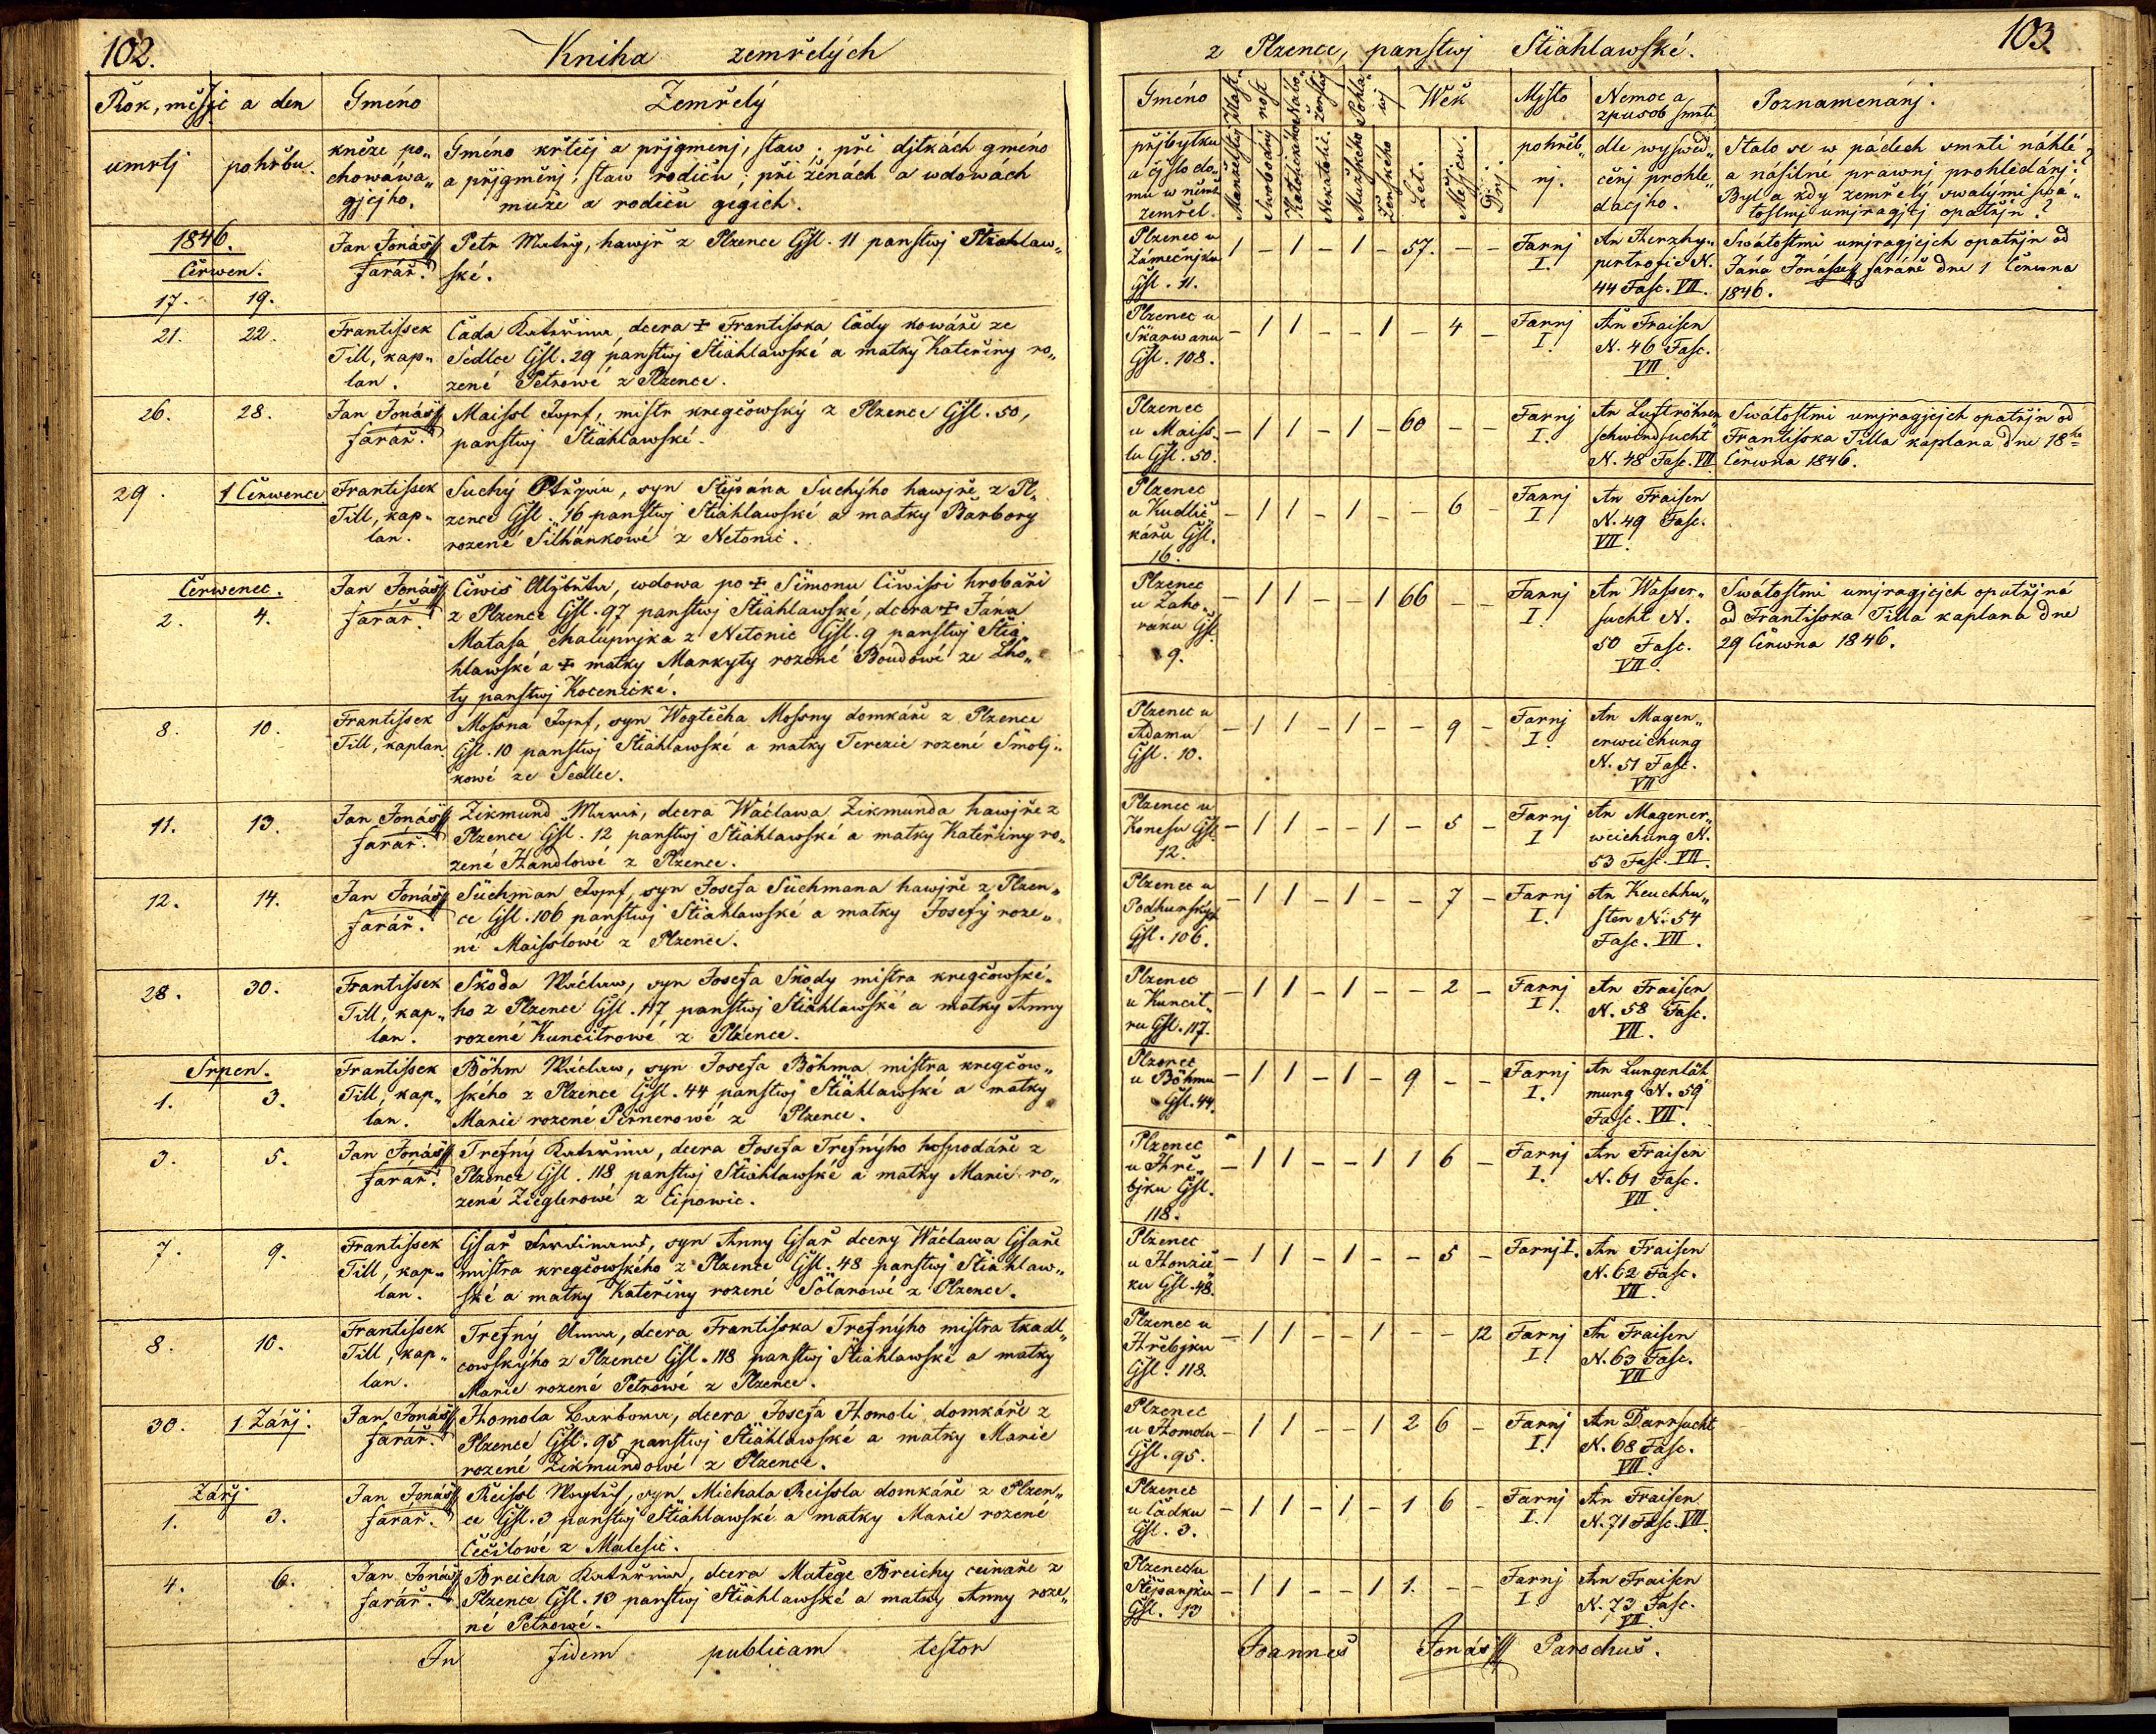 102.
Kniha zemřelých
Rok, měsýc a den
Gméno
Zemřelý
umrtj
pohřbu.
kněze po„
chowáwa„
gjcjho.
Gméno křtěcj a přjgmenj, staw; při djtkách gméno
a přjgměnj, staw rodičů; při ženách a wdowách
muže a rodičů gegich.
1846.
Čerwen.
17. 19.
Jan Jonáss
farář.
Petr Matěg, hawjř z Plzence Čjsl. 11 panstwj Stiahlaw„
ské.
21. 22.
Frantissek
Till, kap„
lan.
Čada Kateřina, dcera + Frantisska Čady kowáře ze
Sedlce Čjsl. 29 panstwj Stiahlawské a matky Kateřiny ro„
zené Petrowé z Plzence.
26. 28.
Jan Jonáss
farář.
Maissl Josef, mistr kregčowský z Plzence Čjsl. 50,
panstwj Stiahlawské.
29. 1 Čerwence
Frantissek
Till, kap„
lan.
Suchý, syn Sstěpána Suchýho hawjře z Pl„
zence Čjsl. 16 panstwj Stiahlawské a matky Barbory
rozené Silhánkowé z Netonic.
Čerwenec.
2. 4.
Jan Jonáss
farář.
Čiwiš Alžběta, wdowa po + Simonu Čiwissi hrobaři
z Plzence Čjsl. 97 panstwj Stiahlawské, dcera + Jána
Matasa chalupnjka z Netonic Čjsl. 9 panstwj Stia
hlawské a + matky Markyty rozené Boudowé ze Lho„
ty panstwj Kocenické.
8. 10.
Frantissek
Till, kaplan.
Mossna Josef, syn Wogtěcha Mossny domkáře z Plzence
Čjsl. 10 panstwj Stiahlawské a matky Terezie rozené Smolj„
kowé ze Sedlce.
11. 13.
Jan Jonáss
farář.
Zikmund Marie, dcera Wácława Zikmunda hawjře z
Plzence Čjsl. 12 panstwj Stiahlawské a matky Kateřiny ro„
zené Handlowé z Plzence.
12. 14.
Jan Jonáss
farář.
Süchman Josef, syn Josefa Süchmana hawjře z Plzen„
ce Čjsl. 106 panstwj Stiahlawské a matky Josefy roze„
né Maisslowé z Plzence.
28. 30.
Frantissek
Till, kap„
lan.
Skoda Wáclaw, syn Josefa Skody mistra kregčowské„
ho z Plzence Čjsl. 117 panstwj Stiahlawské a matky Anny
rozené Kuncitrowé z Plzence.
Srpen.
1. 3.
Frantissek
Till, kap„
lan.
Böhm Wáclaw, syn Josefa Böhma mistra kregčow„
ského z Plzence Čjsl. 44 panstwj Stiahlawské a matky
Marie rozené Pernerowé z Plzence.
3. 5.
Jan Jonáss
farář.
Trefný Kateřina, dcera Josefa Trefnýho hospodáře z
Plzence Čjsl. 118 panstwj Stiahlawské a matky Marie ro„
zené Zieglerowé z Eipowic.
7. 9.
Frantissek
Till, kap„
lan.
Gsař Ferdinand, syn Anny Gsař dcery Wáclawa Gsaře
mistra kregčowského z Plzence Čjsl. 48 panstwj Stiahlaw„
ské a matky Kateřiny rozené Solarowé z Plzence.
8. 10.
Frantissek
Till, kap„
lan.
Trefný Anna, dcera Frantisska Trefnýho mistra tkadl„
cowskýho z Plzence Čjsl. 118 panstwj Stiahlawské a matky
Marie rozené Petrowé z Plzence.
30. 1 Zářj.
Jan Jonáss
farář.
Homola Barbora, dcera Josefa Homoli domkáře z
Plzence Čjsl. 95 panstwj Stiahlawské a matky Marie
rozené Zikmundowé z Plzence.
Zářj
1. 3.
Jan Jonáss
farář.
Reissl Wogtěch, syn Michala Reissla domkáře z Plzen„
ce Čjsl. 3 panstwj Stiahlawské a matky Marie rozené
Čečilowé z Malesic.
4. 6.
Jan Jonáss
farář.
Breicha Kateřina, dcera Matěge Breichy ceinaře z
Plzence Čjsl. 13 panstwj Stiahlawské a matky Anny roze„
né Petrowé.
In fidem publicam testor
103
z Plzence, panstwj Stiahlawské.
Gméno
Wěk
Mjsto
Nemoc a
způsob smrti
Poznamenánj.
přjbytku
a čjslo do„
mu w němž
zemřel.
Manželský
Swobodný
Katolického
Nekatolic.
Mužského
Ženského
Let.
Měsjců.
Dnj.
pohřeb„
nj.
dle wyswěd„
čenj prohle„
dacjho.
Stalo se w pádech smrti náhlé
a násilné prawnj prohlédánj?
Byl a kdy zemřelý swatými swá„
tostmi umjragjcj opatřen?
Plzenec u
Zámečnjka
Čjsl. 11.
1 – 1 – 1 – 57. – –
Farnj
I.
An Herzhy„
pertrofie N.
44 Fasc. VII.
Swátostmi umjragjcjch opatřjn od
Jána Jonásse faráře dne 1 Čerwna
1846.
Plzenec u
Skarwanu
Čjsl. 108.
– 1 1 – – 1 – 4 –
Farnj
I.
An Fraisen
N. 46 Fasc.
VII
Plzenec
u Maiss„
lu Čjsl. 50.
– 1 1 – 1 – 60 – –
Farnj
I.
An Luftröhren
schwindsucht
N. 48 Fasc. VII
Swátostmi umjragjcjch opatřjn od
Frantisska Tilla kaplána dne 18ho
Čerwna 1846.
Plzenec
u Kudlič„
káru Čjsl.
16.
– 1 1 – 1 – – 6 –
Farnj
I
An Fraisen
N. 49 Fasc.
VII.
Plzenec
u Zaho„
raku Čjsl.
9.
– 1 1 – – 1 66 – –
Farnj
I
An Wasser„
sucht N.
50 Fasc.
VII.
Swátostmi umjragjcjch opatřjná
od Frantisska Tilla kaplana dne
29 Čerwna 1846.
Plzenec u
Adamu
Čjsl. 10.
– 1 1 – 1 – – 9 –
Farnj
I.
An Magen„
erweichung
N. 51 Fasc.
VII
Plzenec u
Konesu Čjsl.
12.
– 1 1 – – 1 – 5 –
Farnj
I
An Magener„
weichung N.
53 Fasc. VII.
Plzenec u
Podhurských
Čjsl. 106.
– 1 1 – 1 – – 7 –
Farnj
I.
An Keuchhu„
sten N. 54
Fasc. VII.
Plzenec
u Kuncit„
ru Čjsl. 117.
– 1 1 – 1 – – 2 –
Farnj
I.
An Fraisen
N. 58 Fasc.
VII.
Plzenec
u Böhmu
Čjsl. 44.
– 1 1 – 1 – 9 – –
Farnj
I.
An Lungenläh
mung N. 59
Fasc. VII.
Plzenec
u Hře„
bjku Čjsl.
118.
– 1 1 – – 1 1 6 –
Farnj
I.
An Fraisen
N. 61 Fasc.
VII
Plzenec
u Honzič„
ku Čjsl. 48.
– 1 1 – 1 – – 5 –
Farnj I.
An Fraisen
N. 62 Fasc.
VII.
Plzenec u
Hřebjku
Čjsl. 118.
– 1 1 – – 1 – – 12
Farnj
I.
An Fraisen
N. 63 Fasc.
VII
Plzenec
u Homolu
Čjsl. 95.
– 1 1 – – 1 2 6 –
Farnj
I.
An Darrsucht
N. 68 Fasc.
VII.
Plzenec
u Čadku
Čjsl. 3.
– 1 1 – 1 – 1 6 –
Farnj
I.
An Fraisen
N. 71 Fasc. VII.
Plzenec u
Stěpanjku
Čjsl. 13
– 1 1 – – 1 1. – –
Farnj
I
An Fraisen
N. 73 Fasc.
VII
Joannes Jonáss Parochus.